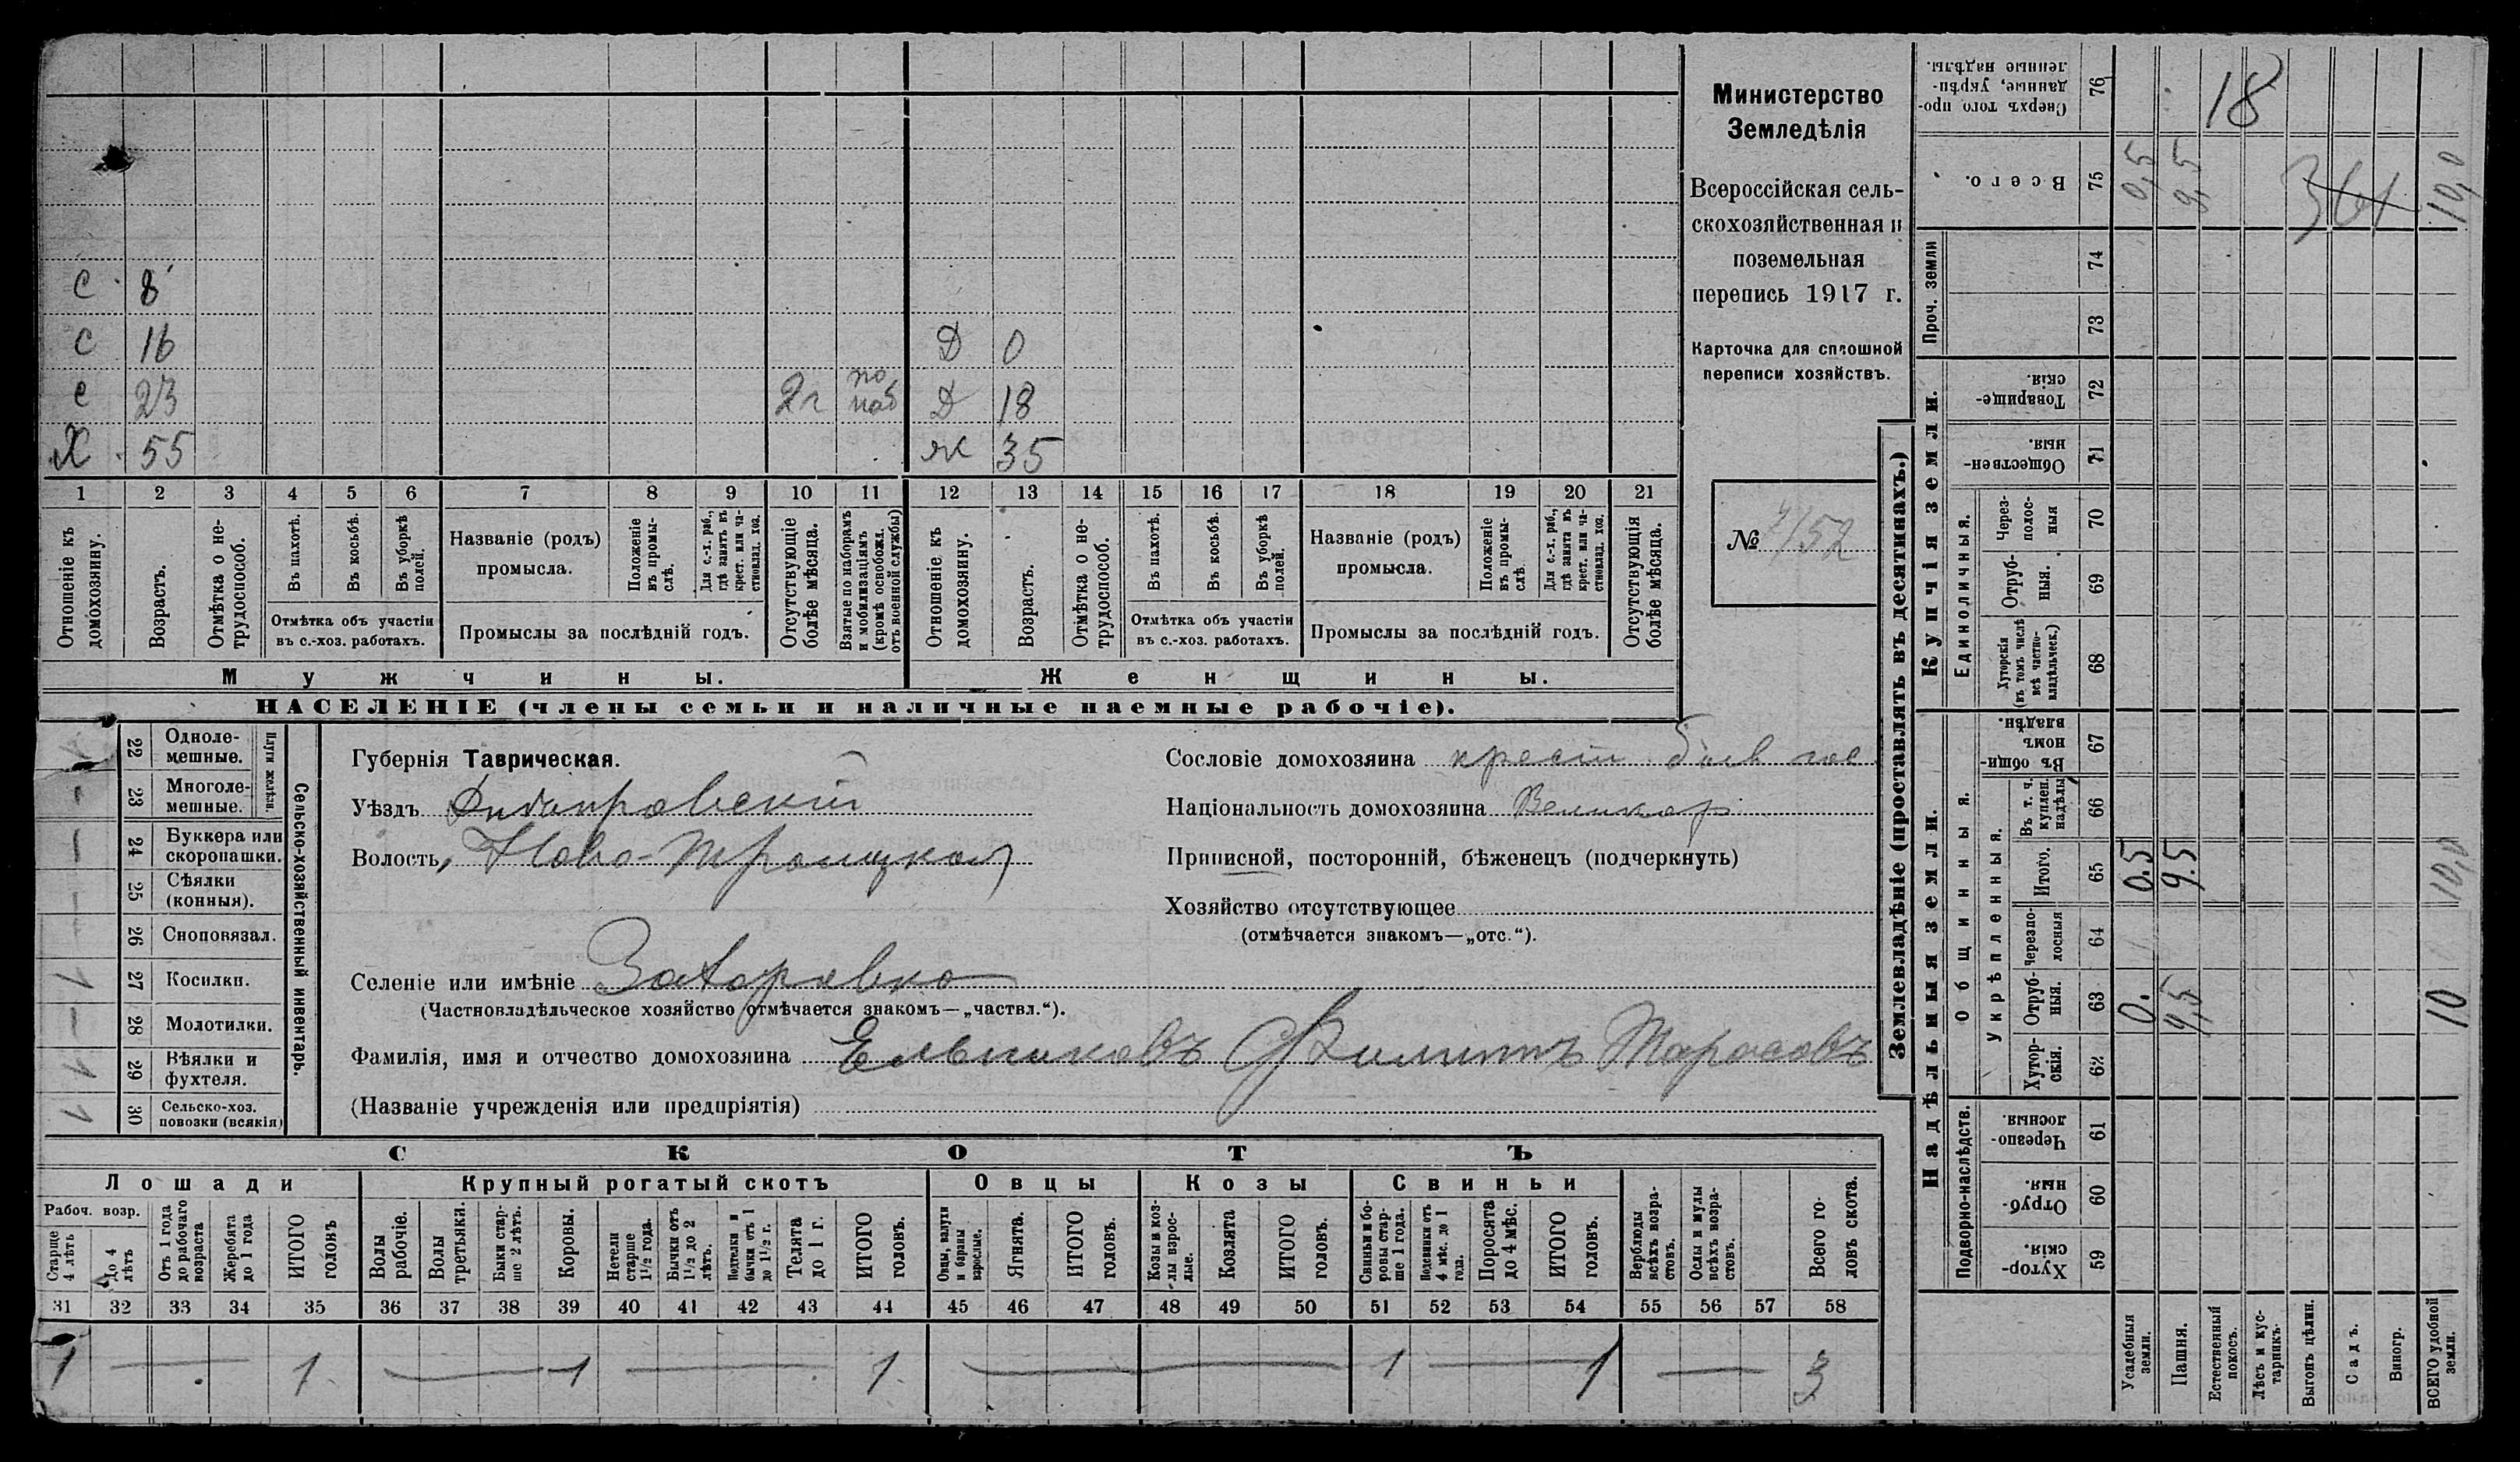 Министерство
Земледѣлія
Всероссійская сель-
скохозяйственная и
поземельная
перепись 1917 г.
Карточка для сплошной
переписи хозяйствъ.
№ /52
С 8
С 16
С 23 2 г по наб
Х 55
Д 0
Д 18
Ж 35
1 2 3 4 5 6 7 8 9 10 11 12 13 14 15 16 17 18 19 20 21
Отношеніе къ домохозяину.
Возрастъ.
Отмѣтка о не-трудоспособ.
Въ пахотѣ.
Въ косьбѣ.
Въ уборкѣ полей.
Отмѣтка объ участіи
въ с.-хоз. работахъ.
Названіе (родъ)
промысла.
Положеніе въ промы-слѣ.
Для с.-х. раб., гдѣ занятъ въ крест. или ча-стновлад. хоз.
Промыслы за послѣдній годъ.
Отсутствующіе болѣе мѣсяца.
Взятые по наборамъ и мобилизаціямъ (кромѣ освобожд. отъ военной службы)
Отношеніе къ домохозяину.
Возрастъ.
Отмѣтка о не-трудоспособ.
Въ пахотѣ.
Въ косьбѣ.
Въ уборкѣ полей.
Отмѣтка объ участіи
въ с.-хоз. работахъ.
Названіе (родъ)
промысла.
Положеніе въ промы-слѣ.
Для с.-х. раб., гдѣ занята въ крест. или ча-стновлад. хоз.
Промыслы за послѣдній годъ.
Отсутствующія болѣе мѣсяца.
Мужчины.
Женщины.
НАСЕЛЕНІЕ (члены семьи и наличные наемные рабочіе).
Сельско-хозяйственный инвентарь.
Плуги желѣзн.
22 Одноле-мешные.
23 Многоле-мешные. -
24 Буккера или скоропашки. -
25 Сѣялки (конныя). -
26 Сноповязал. -
27 Косилки. 1
28 Молотилки. -
29 Вѣялки и фухтеля. 1
30 Сельско-хоз. повозки (всякія) 1
Губернія Таврическая.
Уѣздъ Днѣпровскій
Волость, Ново-Троицкая
Селеніе или имѣніе Захаровка
(Частновладѣльческое хозяйство отмѣчается знакомъ—„частвл.“).
Фамилія, имя и отчество домохозяина Ельниковъ Филиппъ Тарасовъ
(Названіе учрежденія или предпріятія)
Сословіе домохозяина крест быв гос
Національность домохозяина Великор
Приписной, посторонній, бѣженецъ (подчеркнуть)
Хозяйство отсутствующее
(отмѣчается знакомъ—„отс.“).
СКОТЪ
Лошади
Крупный рогатый скотъ
Овцы
Козы
Свиньи
Рабоч. возр.
Старше 4 лѣтъ
до 4 лѣтъ
Отъ 1 года до рабочаго возраста
Жеребята до 1 года
ИТОГО головъ
Волы рабочіе.
Волы третьяки.
Быки стар-ше 2 лѣтъ.
Коровы.
Нетели старше 1½ года.
Бычки отъ 1½ до 2 лѣтъ.
Подтелки и бычки отъ 1 до 1½ г.
Телята до 1 г.
ИТОГО головъ.
Овцы, валухи и бараны взрослые.
Ягнята.
ИТОГО головъ.
Козы и коз-лы взрос-лые.
Козлята
ИТОГО головъ.
Свиньи и бо-ровы стар-ше 1 года.
Подсвинки отъ 4 мѣс. до 1 года.
Поросята до 4 мѣс.
ИТОГО головъ.
Верблюды всѣхъ возра-стовъ.
Ослы и мулы всѣхъ возра-стовъ.
Всего го-ловъ скота.
31 32 33 34 35 36 37 38 39 40 41 42 43 44 45 46 47 48 49 50 51 52 53 54 55 56 57 58
1 — 1 — 1 — 1 — 1 — 1 — 3
Землевладѣніе (проставлять въ десятинахъ.)
Купчія земли.
Надѣльныя земли.
76 Сверхъ того про-данные, укрѣп-ленные надѣлы. 18
75 Всего. 0,5 9,5 10,0
Проч. земли
74
73
72 Товарище-скія.
71 Обществен-ныя.
Единоличныя.
70 Через-полос-ныя
69 Отруб-ныя.
68 Хуторскія (въ томъ числѣ всѣ частно-владѣльческ.)
Общинныя.
67 Въ общи-номъ владѣн.
Укрѣпленныя.
66 Въ т. ч. куплен. надѣлы
65 Итого. 0.5 9.5 10,0
64 Черезпо-лосныя
63 Отруб-ныя. 0. 9,5 10
62 Хутор-скія.
Подворно-наслѣдств.
61 Черезпо-лосныя
60 Отруб-ныя.
59 Хутор-скія.
Усадебныя земли.
Пашня.
Естественный покосъ.
Лѣсъ и кус-тарникъ.
Выгонъ цѣлин.
Садъ.
Виногр.
ВСЕГО удобной земли.